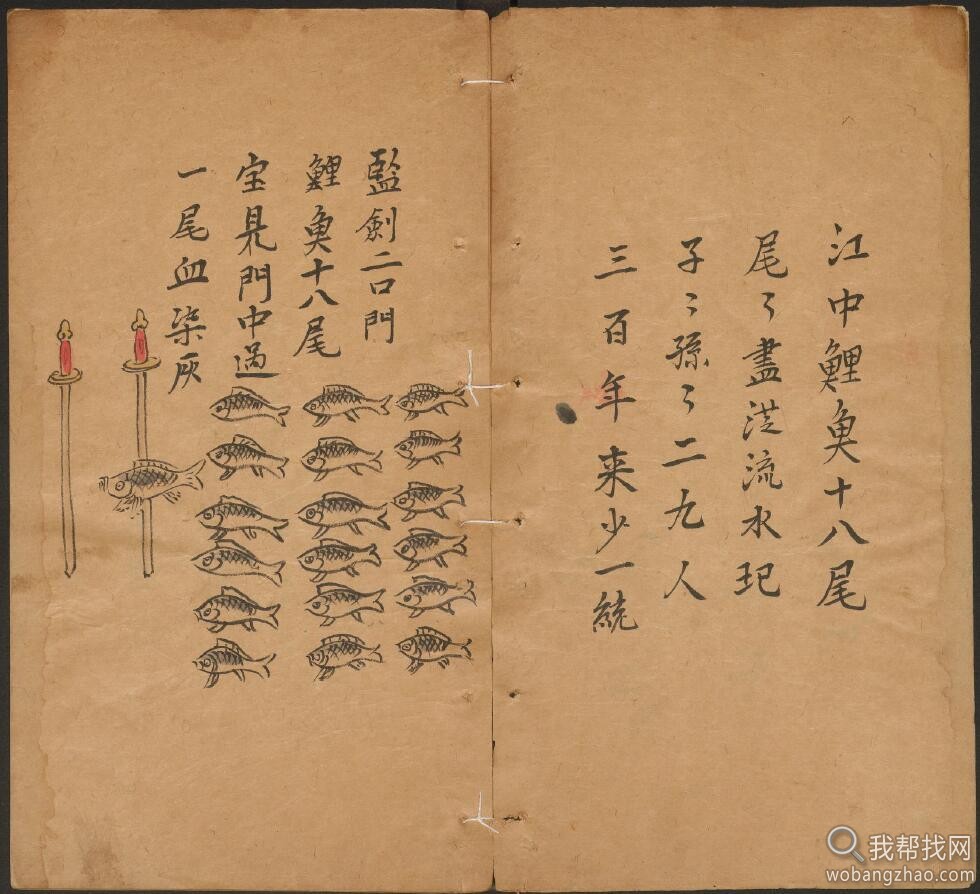 江中鯉魚十八尾
尾〻盡淇流水玘
子〻孫〻二九人
三百年来少一統
監劍二口門
鯉魚十八尾
宝見門中過
一尾血柒灰
我帮找网
wobangzhao.com